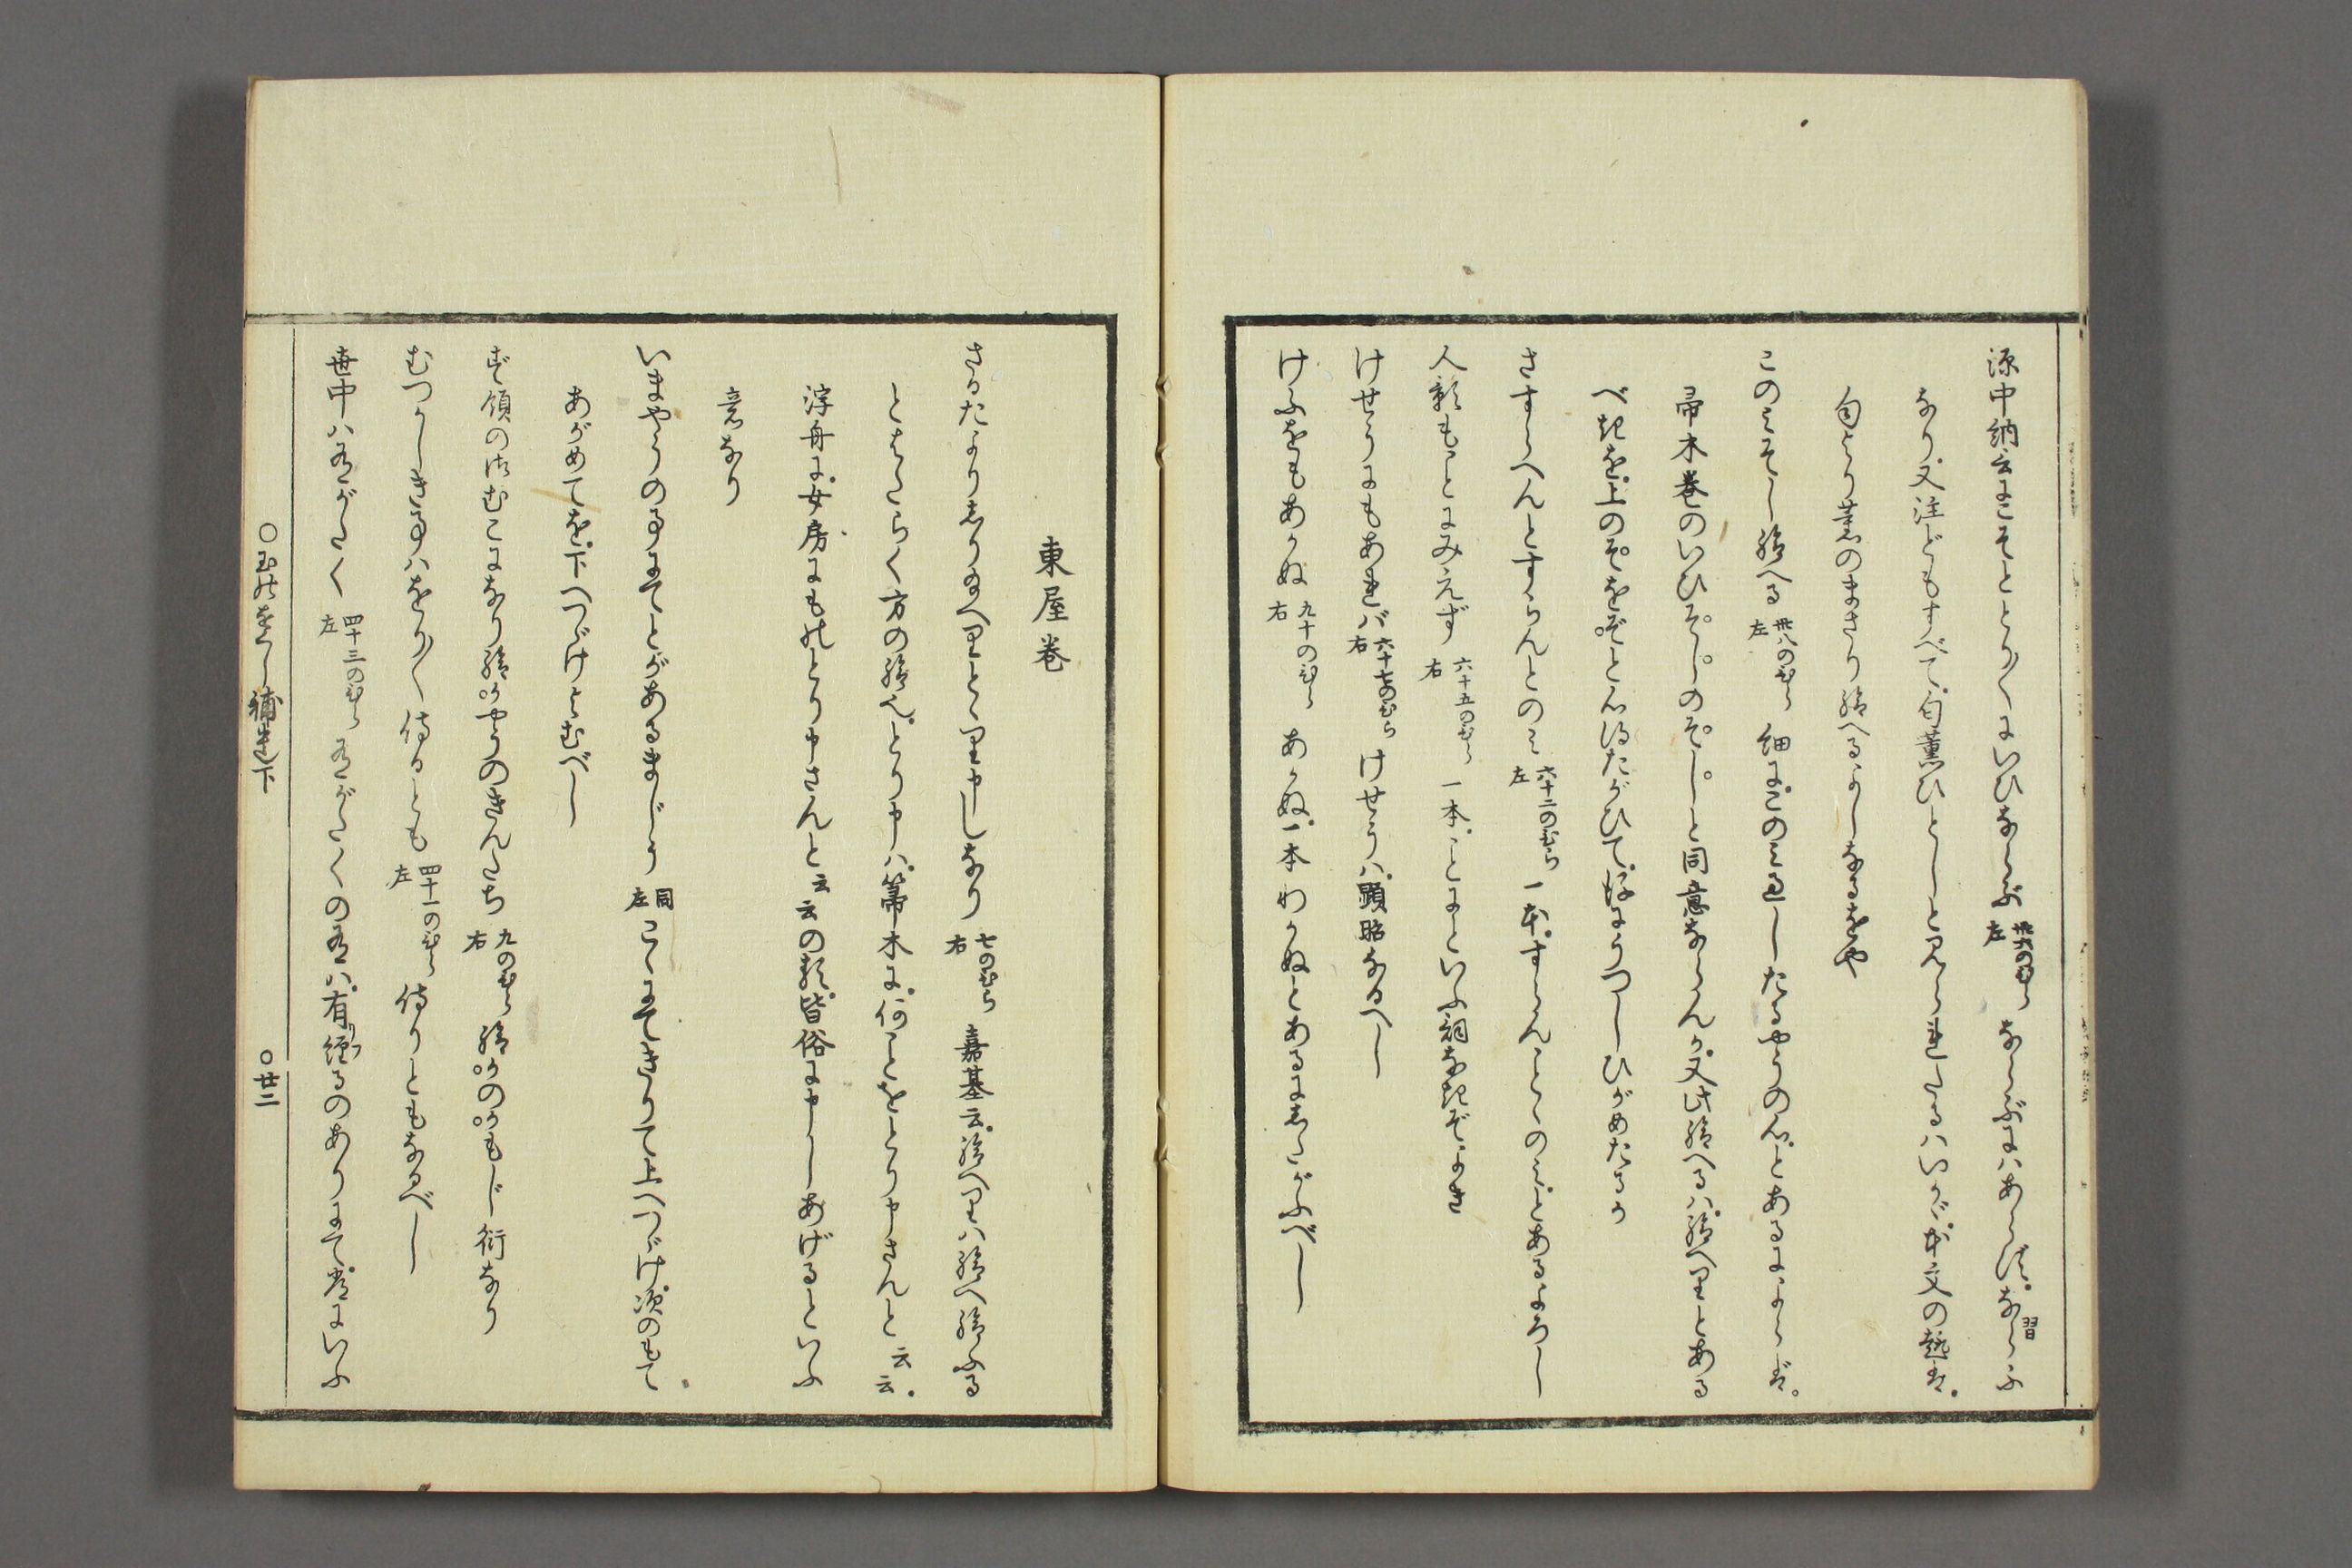 源中納言にこそとり〴〵にいひならぶ 卅六のひら左 ならぶにハあらず。ならふ習
なり。又注どもすべて。匂薫ひとしと見られたるハいかゞ。本文の趣は。
匂より薫のまさり給へるよしなるをや
このみそし給へる 卅八のひら左 細に。このみ過したるやうの心とあるによらば。
帚木巻のいひそしのそしと同意ならんか。又此給へるハ。給へりとある
べきを。上のぞをぞと心得たがひて。後にうつしひがめたるか
さすらへんとすらんとのみ 六十二のひら左 一本。すらんことのみとあるよろし
人影もことにみえず 六十五のひら右 一本。ことにといふ詞なきぞよき
けせうにもあれバ 六十七のひら右 けせうハ。顕昭なるへし
けふをもあかぬ 九十のひら右 あかぬ。一本わかぬとあるにしたがふべし
東屋巻
さるたよりしり給へりとゝり申しなり 七のひら右 嘉基云。給へりハ給へ給ふる
とはたらく方の給へ。とり申しハ。箒木に。何ことをとり申さんと云云。
浮舟に。女房にものとり申さんと云云の類。皆俗に申しあげるといふ
意なり
いまやうの事にてとがあるまじう 同左 こゝにてきりて上へつゞけ。次のもて
あがめてを。下へつゞけよむべし
ず領の御むこになり給かやうのきんたち 九のひら右 給かのかもじ衍なり
むつかしき事ハをり〳〵侍るとも 四十一のひら左 侍りともなるべし
世中ハ有がたく 四十三のひら左 有がたくの有ハ。有経るのありにて。常にいふ
○玉の小くし補遺下 ○廿二